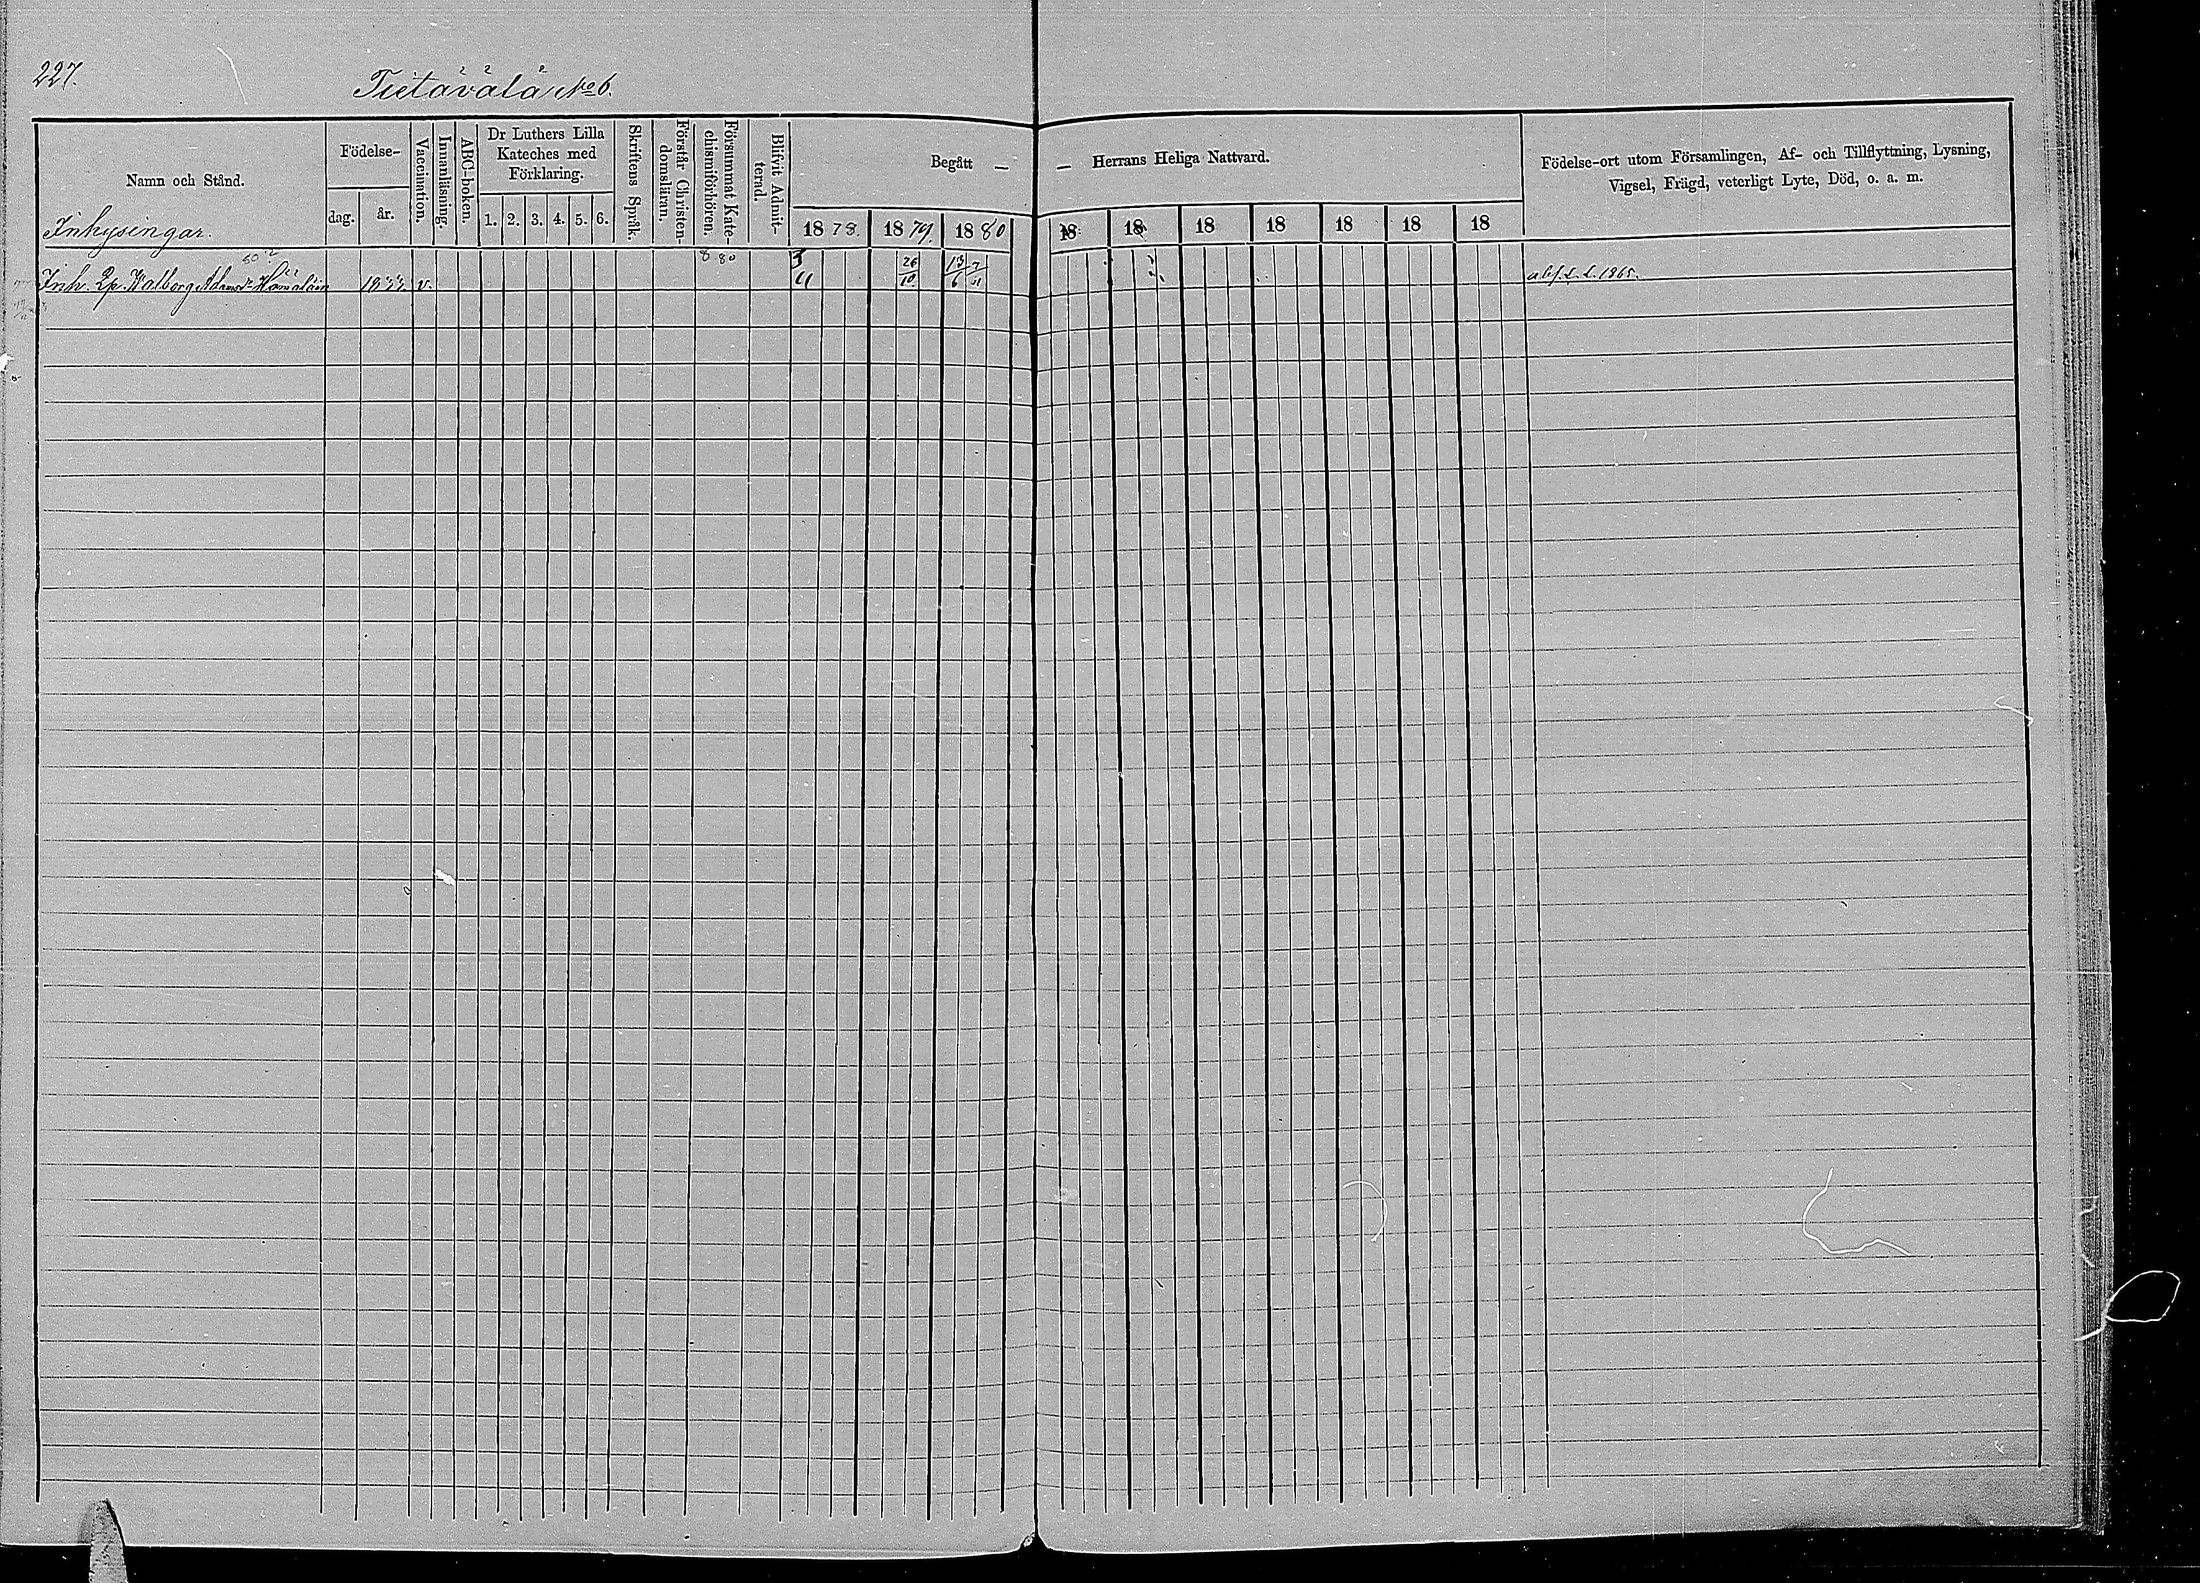 227.
Tietäväla No 6.
Namn och Stånd.
Födelse-
dag.
år.
Vaccination.
Innanläsning.
ABC-boken.
Dr Luthers Lilla
Kateches med
Förklaring.
1. 2. 3. 4. 5. 6.
Skriftens Språk.
Förstår Christen-
domsläran.
Försummat Kate-
chismiförhören.
Blifvit Admit-
terad.
Begått —
— Herrans Heliga Nattvard.
1878. 1879. 1880 18 18 18 18 18 18 18
Födelse-ort utom Församlingen, Af- och Tillflyttning, Lysning,
Vigsel, Frägd, veterligt Lyte, Död, o. a. m.
Inhysingar.
Inh. Walborg Adamsdr 1833 v. 80 26/10 13/6 7/11 1865.